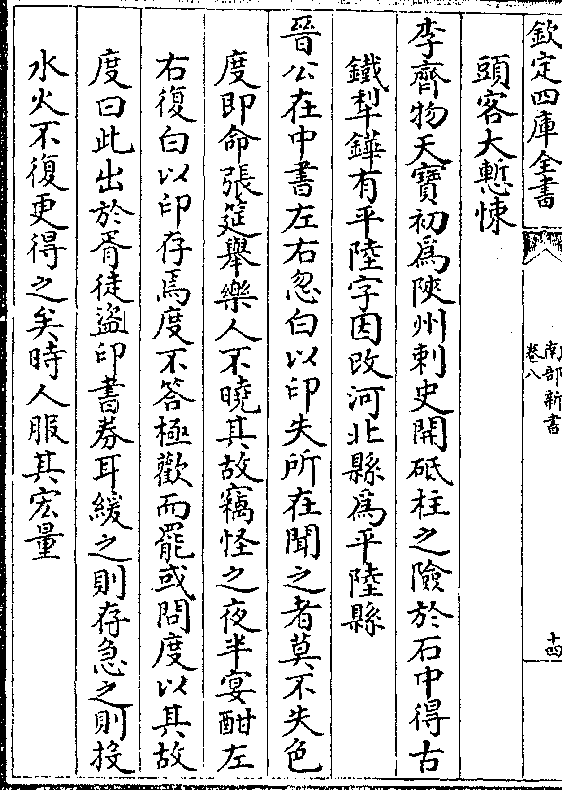 欽定四庫全書
南部新書
卷八
十四
頭客大慙悚
李齊物天寶初爲陝州刺史開砥柱之險於石中得古
鐵犁鏵有平陸字因改河北縣爲平陸縣
晉公在中書左右忽白以印失所在聞之者莫不失色
度即命張筵舉樂人不曉其故竊怪之夜半宴酣左
右復白以印存焉度不答極歡而罷或問度以其故
度曰此出於胥徒盜印書券耳緩之則存急之則投
水火不復更得之矣時人服其宏量